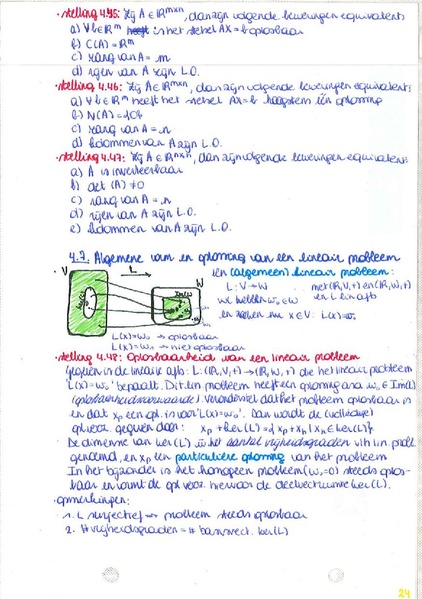 • stelling 4.45: Zij A ∈ ℝᵐˣⁿ, dan zijn volgende beweringen equivalent:
a) ∀ b ∈ ℝᵐ is het stelsel AX = b oplosbaar
b) C(A) = ℝᵐ
c) rang van A = m
d) rijen van A zijn L.O.
• stelling 4.46: Zij A ∈ ℝᵐˣⁿ, dan zijn volgende beweringen equivalent:
a) ∀ b ∈ ℝᵐ heeft het stelsel AX = b hoogstens één oplossing
b) N(A) = {0}
c) rang van A = n
d) kolommen van A zijn L.O.
• stelling 4.47: Zij A ∈ ℝⁿˣⁿ, dan zijn volgende beweringen equivalent:
a) A is inverteerbaar
b) det (A) ≠ 0
c) rang van A = n
d) rijen van A zijn L.O.
e) kolommen van A zijn L.O.
4.7. Algemene vorm en oplossing van een lineair probleem
V L W
een (algemeen) lineair probleem:
L: V → W met (ℝ,V,+) en (ℝ,W,+)
we hebben w₀ ∈ W en L lin afb
en zoeken nu x ∈ V: L(x) = w₀
L(x) = w₀ → oplosbaar
L(x) = w₀ → niet oplosbaar
• stelling 4.48: Oplosbaarheid van een lineair probleem
Gegeven is de lineaire afb: L: (ℝ,V,+) → (ℝ,W,+) die het lineair probleem
'L(x) = w₀' bepaalt. Dit lin probleem heeft een oplossing asa w₀ ∈ Im(L)
(oplosbaarheidsvoorwaarde). Veronderstel dat het probleem oplosbaar is
en dat xₚ een opl. is voor 'L(x) = w₀'. Dan wordt de (volledige)
opl. verz. gegeven door: xₚ + ker(L) = {xₚ + xₕ | xₕ ∈ ker(L)}
De dimensie van ker(L) wordt het aantal vrijheidsgraden v/h lin. probl.
genoemd, en xₚ een particuliere oplossing van het probleem
In het bijzonder is het homogeen probleem (w₀ = 0) steeds oplos-
baar en vormt de opl verz. hiervoor de deelvectorruimte ker(L).
• opmerkingen:
1. L surjectief → probleem steeds oplosbaar
2. # vrijheidsgraden = # basisvect. ker(L)
24